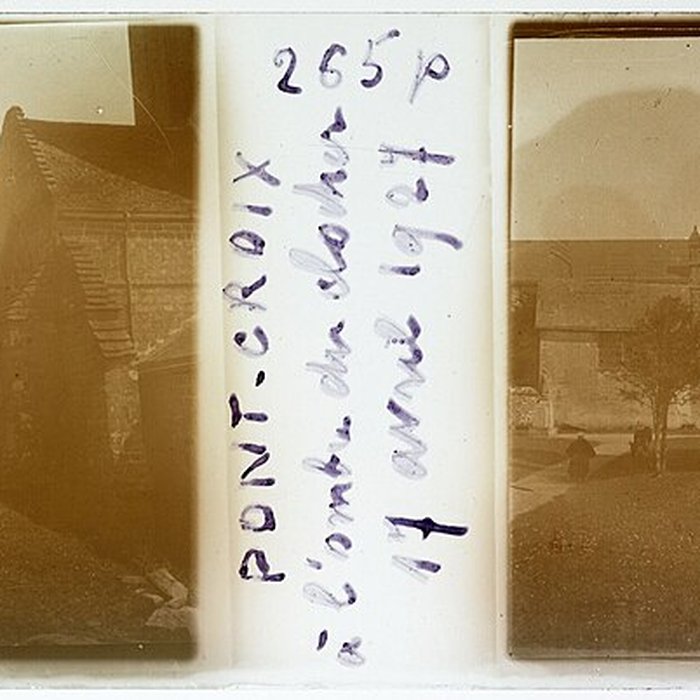 265 p
PONT-CROIX
à l'ombre du clocher
17 avril 1927